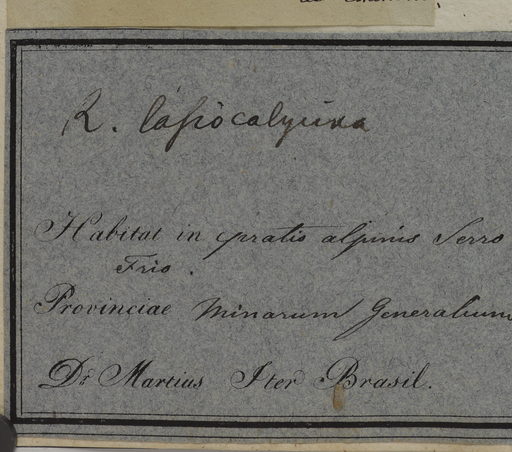 R. lasiocalycina
Habitat in pratis alpinis Serro
Frio.
Provinciae Minarum Generalium
Dr Martius Iter Brasil.